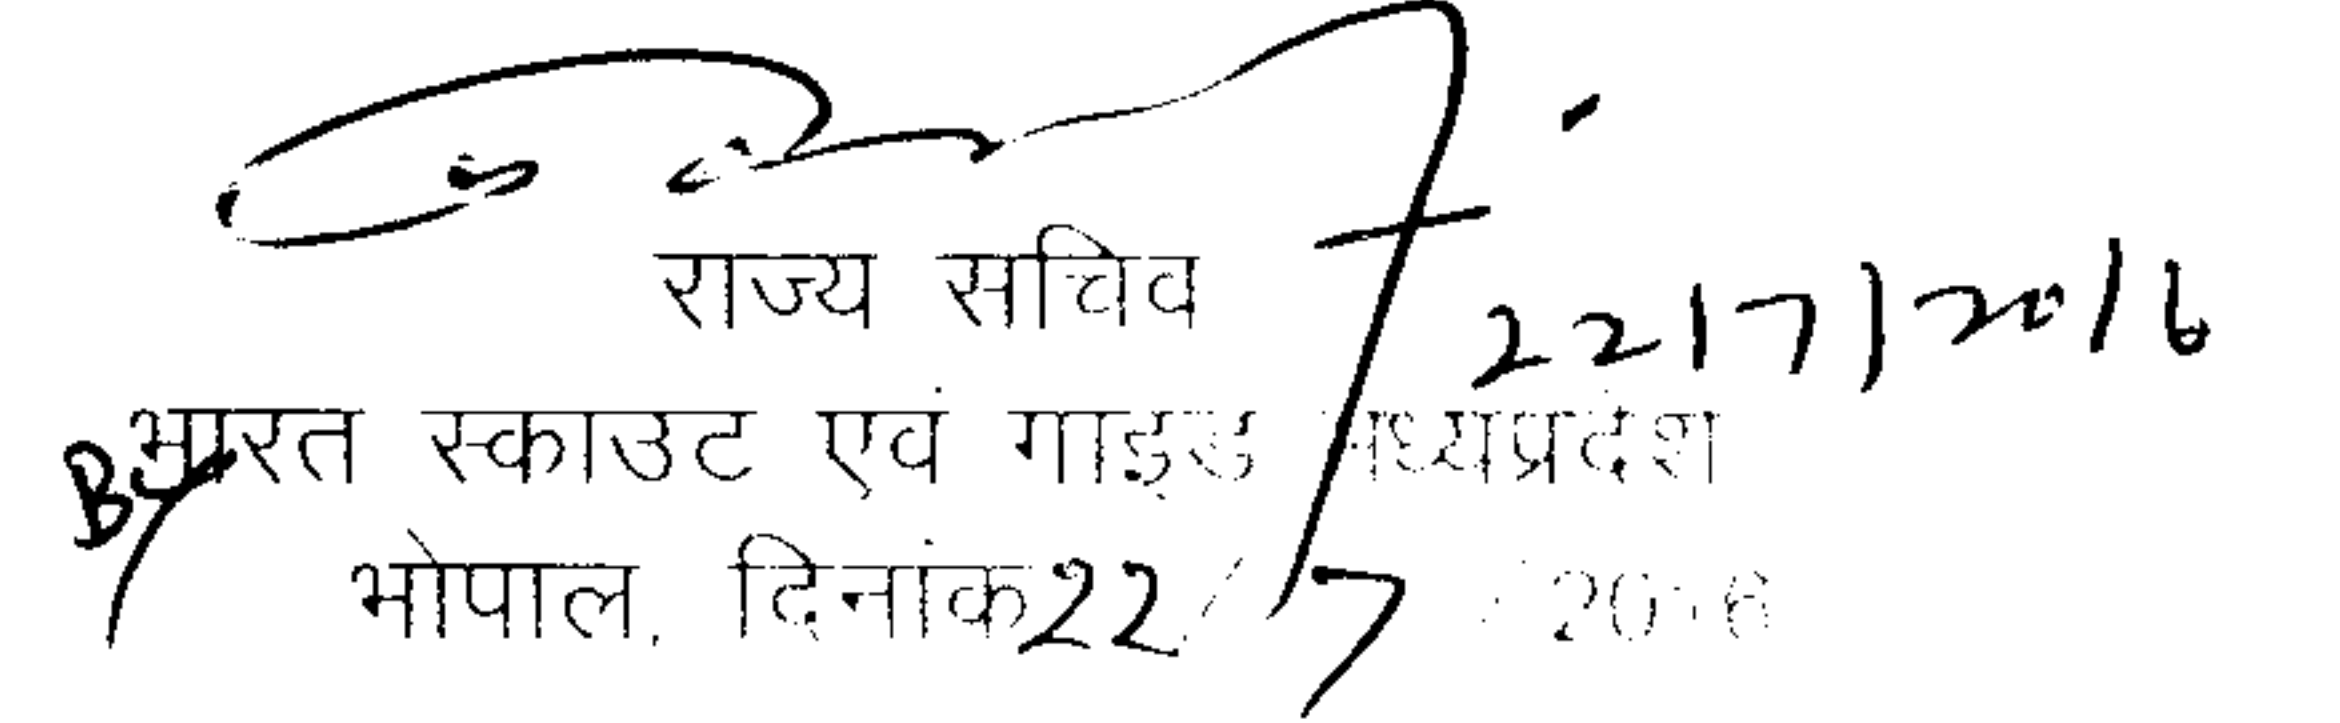 राज्य सचिव
22/7/2016
भारत स्काउट एवं गाइड मध्यप्रदेश
By
भोपाल, दिनांक 22/7/2016